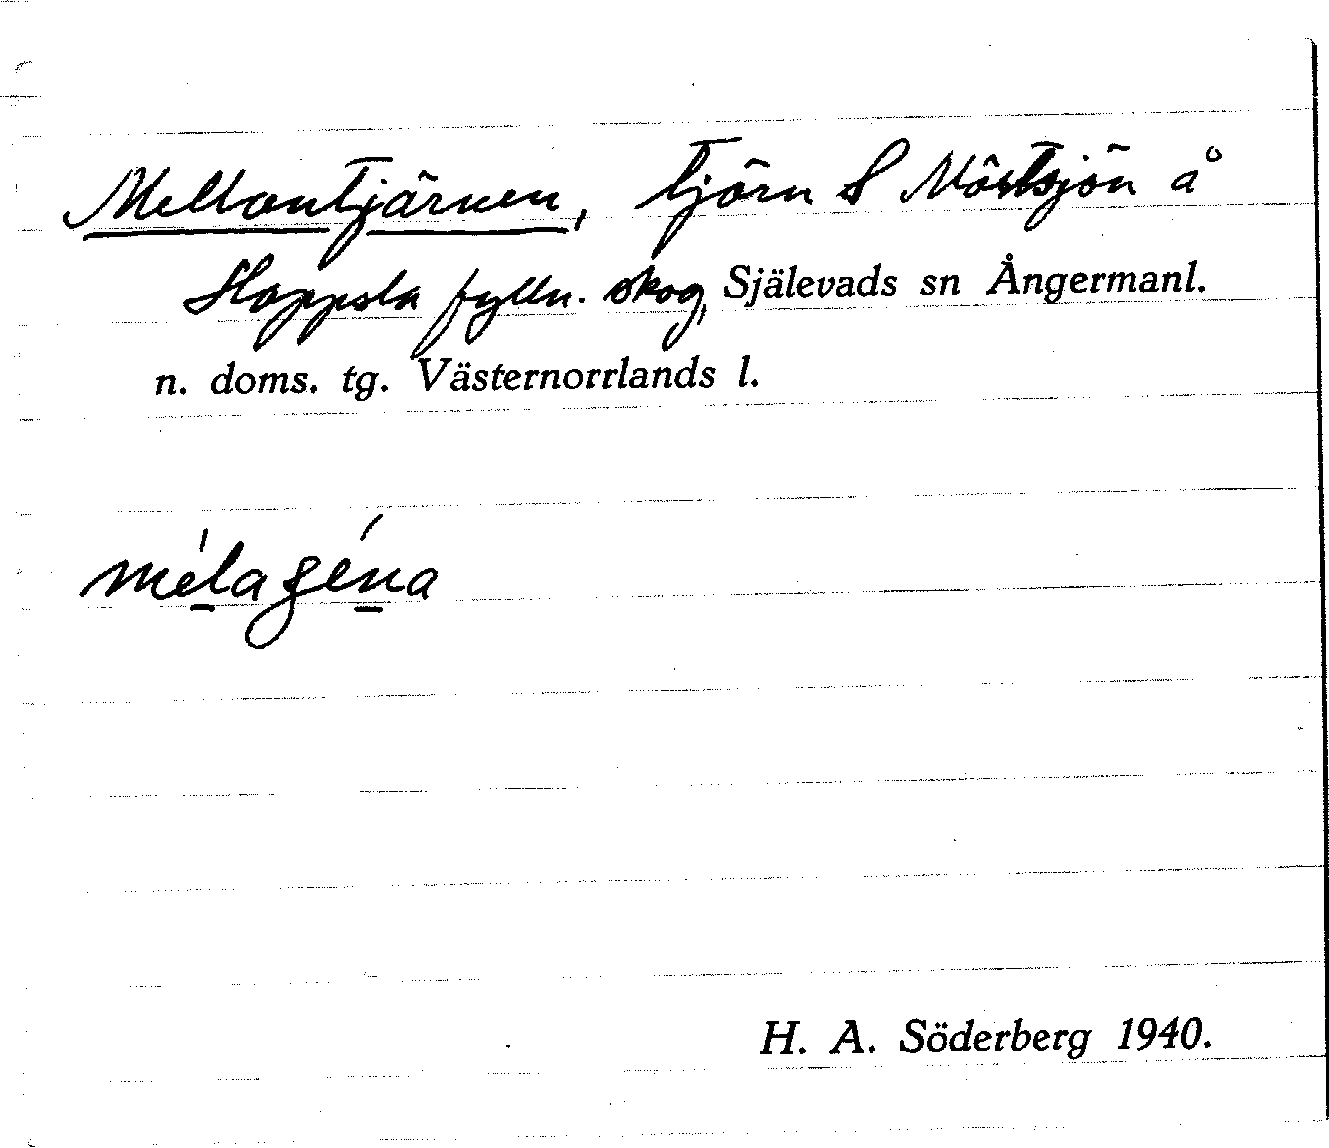 Mellantjärnen, tjärn S Mörtsjön å
Happsta fylln. skog, Själevads sn Ångermanl.
n. doms. tg. Västernorrlands l.
H. A. Söderberg 1940.